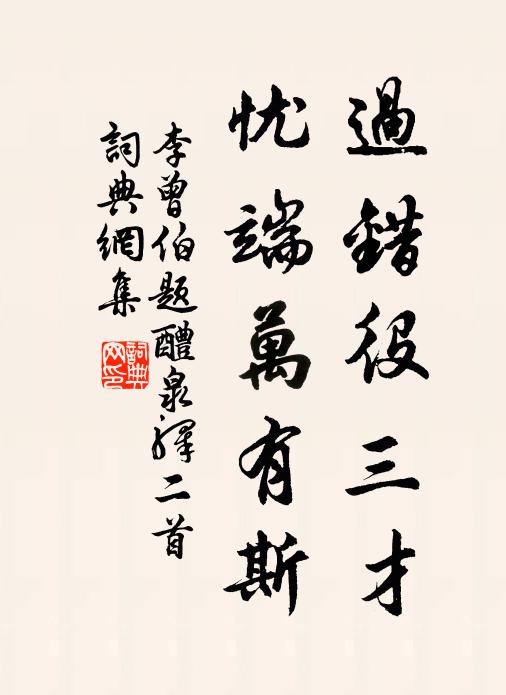 過錯役三才
忧端萬有斯
李曾伯題醴泉驛二首
詞典網集
詞典
网印